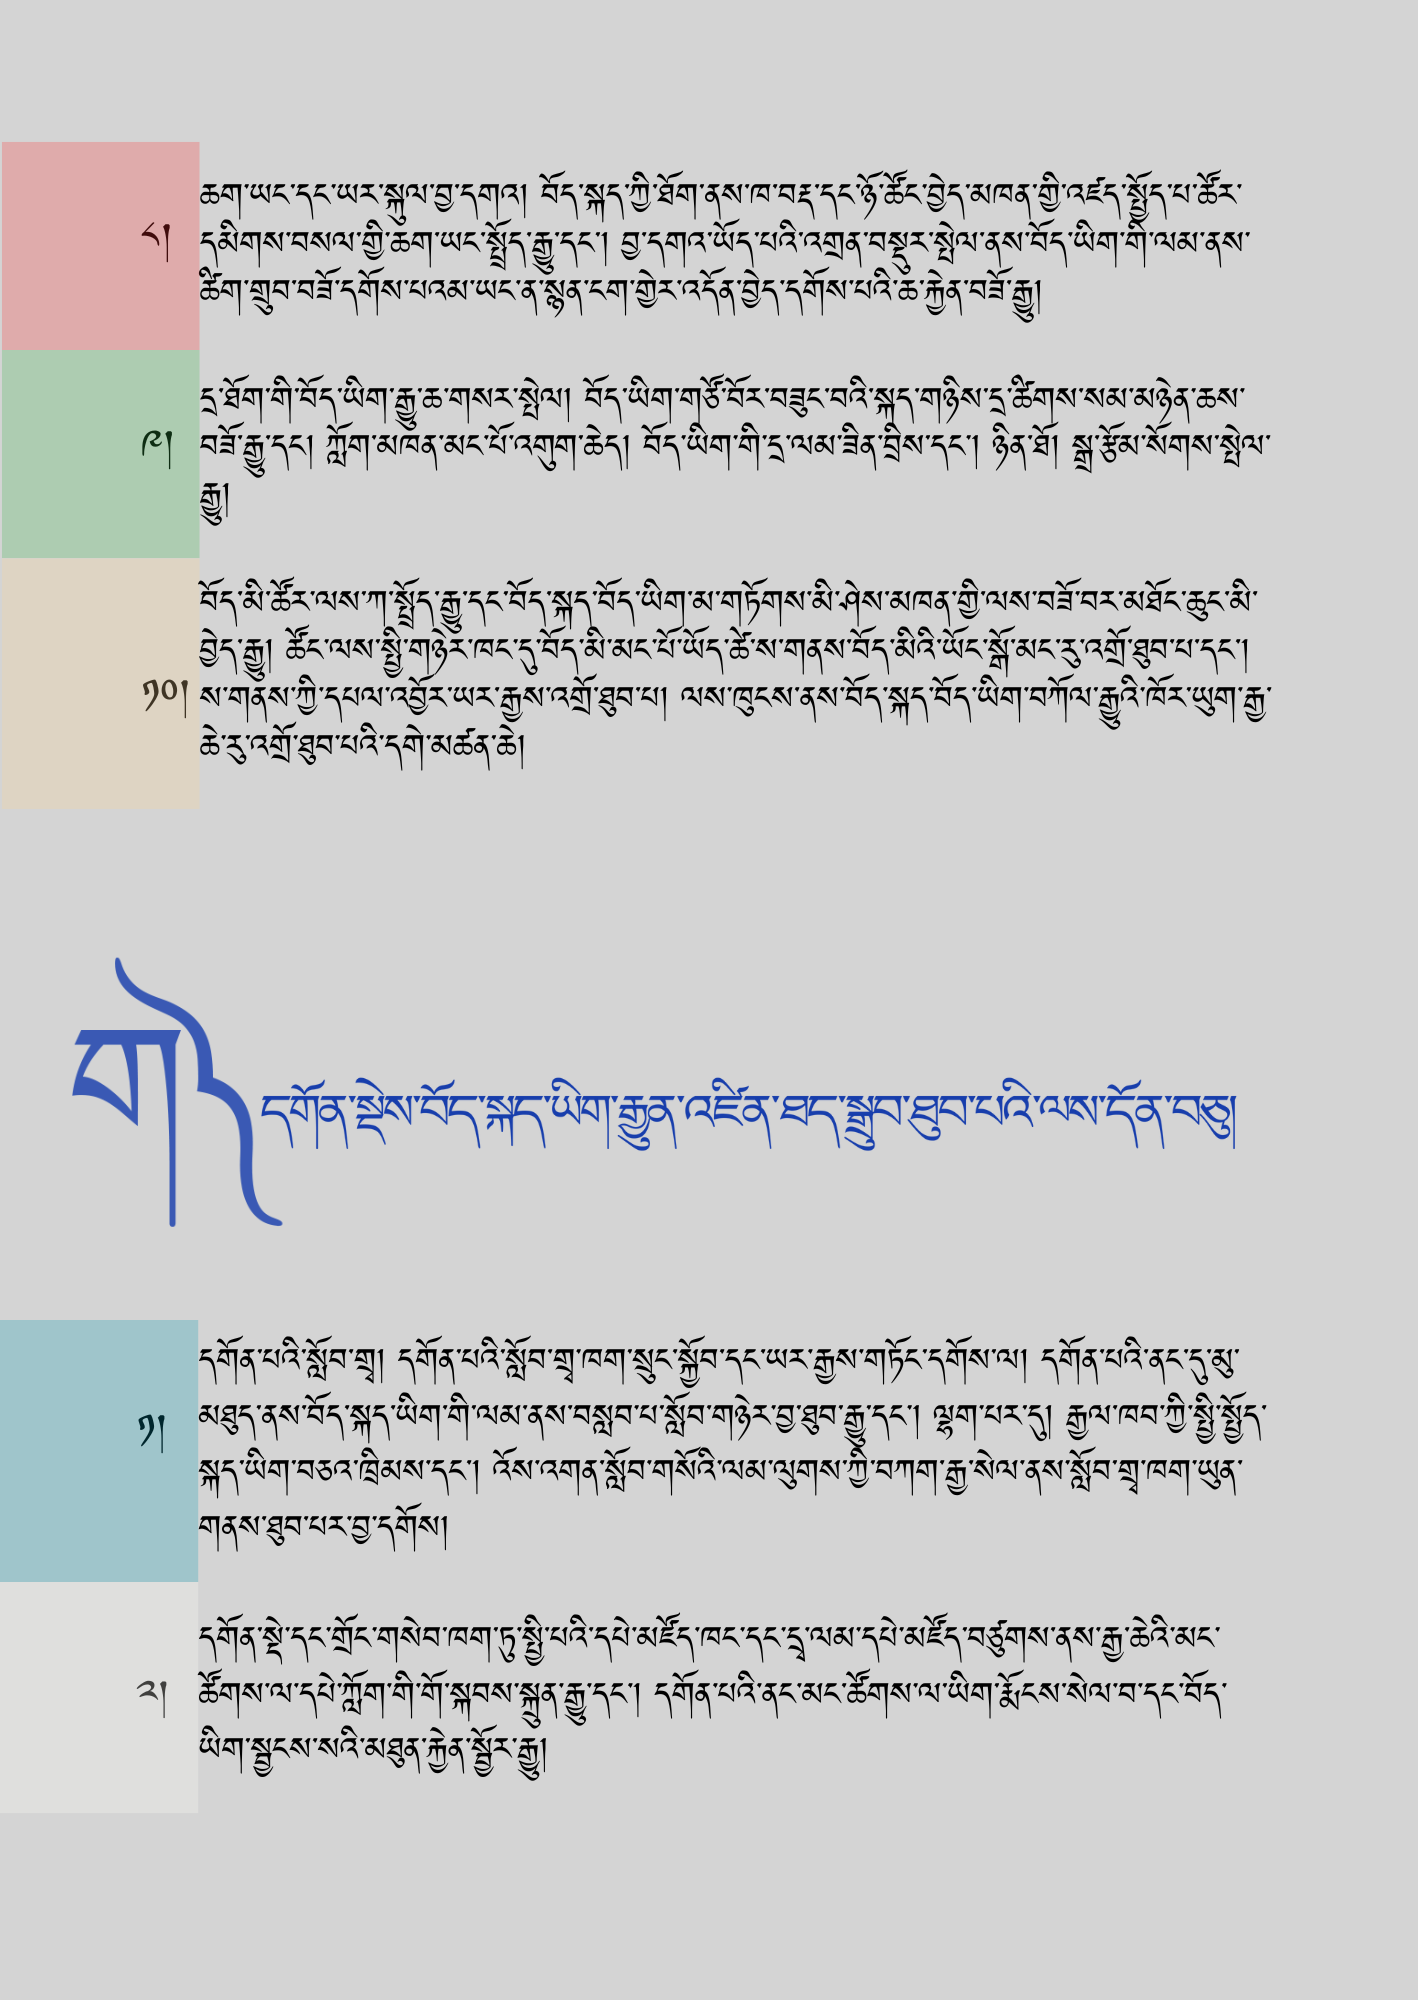 ཆག་ཡང་དང་ཡར་སྐུལ་བྱ་དགའ། བོད་སྐད་ཀྱི་ཐོག་ནས་ཁ་བརྡ་དང་ཉོ་ཚོང་བྱེད་མཁན་གྱི་འཛད་སྤྱོད་པ་ཚོར་
༨། དམིགས་བསལ་གྱི་ཆག་ཡང་སྤྲོད་རྒྱུ་དང་། བྱ་དགའ་ཡོད་པའི་འགྲན་བསྡུར་སྤེལ་ནས་བོད་ཡིག་གི་ལམ་ནས་
ཚིག་གྲུབ་བཟོ་དགོས་པའམ་ཡང་ན་སྙན་ངག་གྱེར་འདོན་བྱེད་དགོས་པའི་ཆ་རྐྱེན་བཟོ་རྒྱུ།
དྲ་ཐོག་གི་བོད་ཡིག་རྒྱུ་ཆ་གསར་སྤེལ། བོད་ཡིག་གཙོ་བོར་བཟུང་བའི་སྐད་གཉིས་དྲ་ཚིགས་སམ་མཉེན་ཆས་
༩། བཟོ་རྒྱུ་དང། ཀློག་མཁན་མང་པོ་འགུག་ཆེད། བོད་ཡིག་གི་དྲ་ལམ་ཟིན་བྲིས་དང་། ཉིན་ཐོ། སྒྲ་རྩོམ་སོགས་སྤེལ་
རྒྱུ།
བོད་མི་ཚོར་ལས་ཀ་སྤྲོད་རྒྱུ་དང་བོད་སྐད་བོད་ཡིག་མ་གཏོགས་མི་ཤེས་མཁན་གྱི་ལས་བཟོ་བར་མཐོང་ཆུང་མི་
བྱེད་རྒྱུ། ཚོང་ལས་སྤྱི་གཉེར་ཁང་དུ་བོད་མི་མང་པོ་ཡོད་ཚེ་ས་གནས་བོད་མིའི་ཡོང་སྒོ་མང་རུ་འགྲོ་ཐུབ་པ་དང་།
༡༠། ས་གནས་ཀྱི་དཔལ་འབྱོར་ཡར་རྒྱས་འགྲོ་ཐུབ་པ། ལས་ཁུངས་ནས་བོད་སྐད་བོད་ཡིག་བཀོལ་རྒྱུའི་ཁོར་ཡུག་རྒྱ་
ཆེ་རུ་འགྲོ་ཐུབ་པའི་དགེ་མཚན་ཆེ།
ག༽ དགོན་སྡེས་བོད་སྐད་ཡིག་རྒྱུན་འཛིན་ཐད་སྒྲུབ་ཐུབ་པའི་ལས་དོན་བཅུ།
དགོན་པའི་སློབ་གྲྭ། དགོན་པའི་སློབ་གྲྭ་ཁག་སྲུང་སྐྱོབ་དང་ཡར་རྒྱས་གཏོང་དགོས་ལ། དགོན་པའི་ནང་དུ་མུ་
༡། མཐུད་ནས་བོད་སྐད་ཡིག་གི་ལམ་ནས་བསླབ་པ་སློབ་གཉེར་བྱ་ཐུབ་རྒྱུ་དང་། ལྷག་པར་དུ། རྒྱལ་ཁབ་ཀྱི་སྤྱི་སྤྱོད་
སྐད་ཡིག་བཅའ་ཁྲིམས་དང་། འོས་འགན་སློབ་གསོའི་ལམ་ལུགས་ཀྱི་བཀག་རྒྱ་སེལ་ནས་སློབ་གྲྭ་ཁག་ཡུན་
གནས་ཐུབ་པར་བྱ་དགོས།
དགོན་སྡེ་དང་གྲོང་གསེབ་ཁག་ཏུ་སྤྱི་པའི་དཔེ་མཛོད་ཁང་དང་དྲྭ་ལམ་དཔེ་མཛོད་བཙུགས་ནས་རྒྱ་ཆེའི་མང་
༢། ཚོགས་ལ་དཔེ་ཀློག་གི་གོ་སྐབས་སྐྲུན་རྒྱུ་དང་། དགོན་པའི་ནང་མང་ཚོགས་ལ་ཡིག་རྨོངས་སེལ་བ་དང་བོད་
ཡིག་སྦྱངས་སའི་མཐུན་རྐྱེན་སྦྱོར་རྒྱུ།